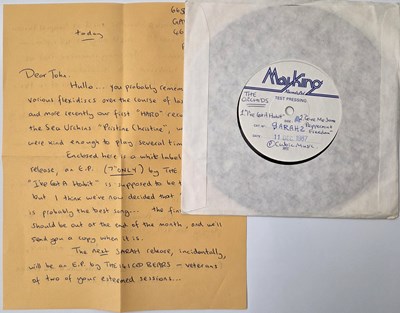 663
GA
46
today
Dear John,
Hullo... you probably remem
various flexidiscs over the course of la
and more recently our first "HARD" rec
the Sea Urchins' "Pristine Christine", w
were kind enough to play several time
Enclosed here is a white label
release, an E.P. (7" ONLY) by THE
"I've Got A Habit" is supposed to be t
but I think we've now decided that
is probably the best song... the fin
should be out at the end of the month, and we'll
send you a copy when it is.
The next SARAH release, incidentally,
will be an E.P. by THE
of two of your esteemed sessions...
MayKing
Records Ltd
TEST PRESSING
THE
ORCHIDS
I've Got A Habit
Give Me Some
Peppermint
Freedom
SARAH 2
11 DEC 1987